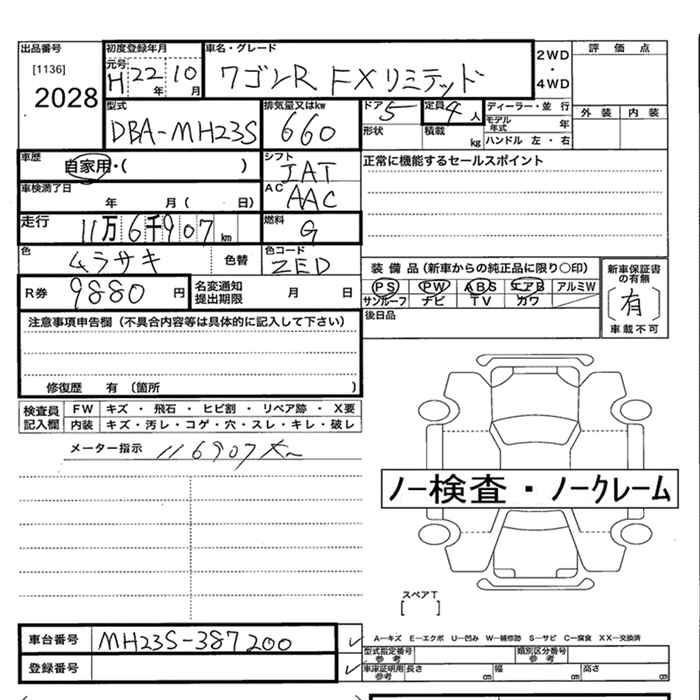 出品番号 初度登録年月 車名・グレード 2WD・4WD 評価点
[1136] 元号 H 22年 10月 ワゴンR FXリミテッド
2028
型式 排気量又はkw ドア 5 定員 4人 ディーラー・並行 外装 内装
DBA-MH23S 660 形状 積載 kg モデル年式 年
ハンドル 左・右
車歴 自家用・( ) シフト 正常に機能するセールスポイント
IAT
車検満了日 年 月( 日) AC AAC
走行 11万6千907km 燃料 G
色 ムラサキ 色替 色コード ZED
装備品(新車からの純正品に限り○印) 新車保証書の有無
R券 9880円 名変通知提出期限 月 日 PS PW ABS エアB アルミW [有]
サンルーフ ナビ TV カワ 車載不可
注意事項申告欄(不具合内容等は具体的に記入して下さい) 後日品
修復歴 有 (箇所 )
検査員記入欄 FW キズ・飛石・ヒビ割・リペア跡・X要
内装 キズ・汚レ・コゲ・穴・スレ・キレ・破レ
メーター指示 116907
ノー検査・ノークレーム
スペアT
[ ]
車台番号 MH23S-387200 A—キズ E—エクボ U—凹み W—補修跡 S—サビ C—腐食 XX—交換済
型式指定番号 参考 類別区分番号 参考
登録番号 車庫証明用 参考 長さ cm 幅 cm 高さ cm